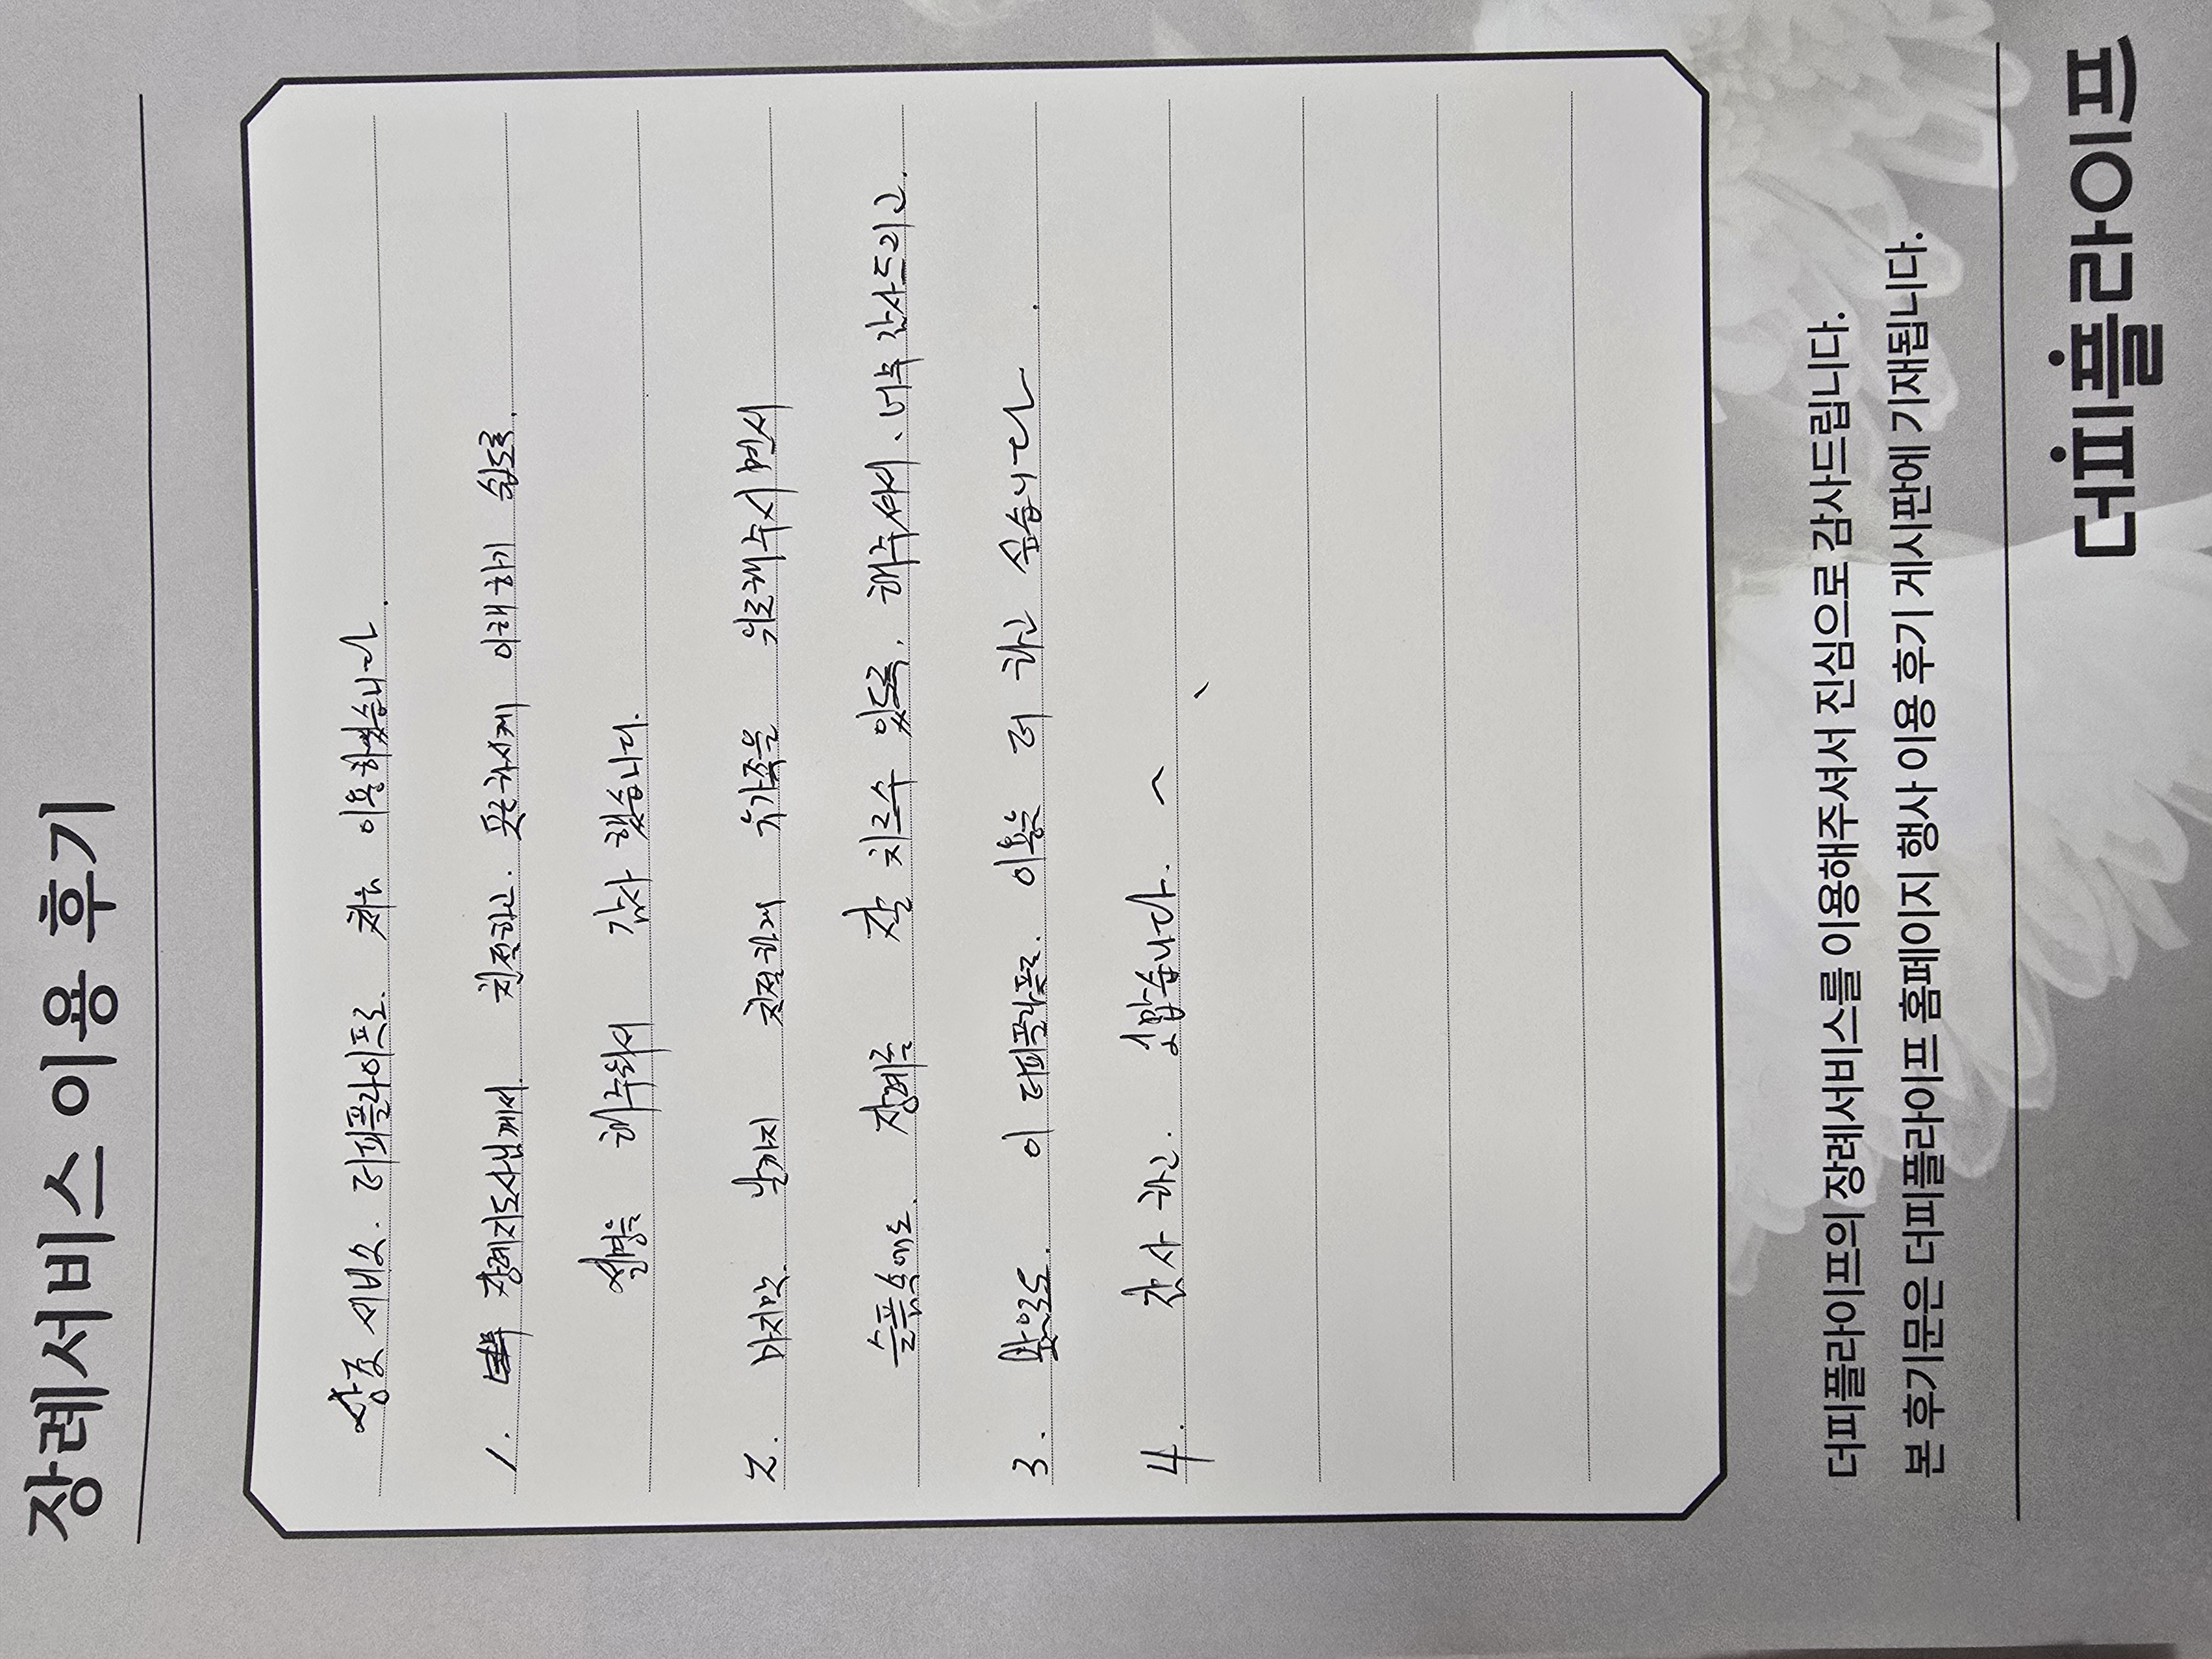 장례서비스 이용 후기
상조 서비스. 더피플라이프로. 처음 이용하였습니다.
1. 장례지도사님께서. 친절하고. 이해하기 쉽도록.
설명을 해주워서 감사 했습니다.
2. 마지막. 날까지 친절하게 유가족을 위로해주시면서
슬픔속에도. 장례를 잘 치르수 있도록. 해주셔서. 너무 감사드리고.
3. 이 더피플라이프. 이용을 더 하고 싶습니다.
4. 감사 하고. 고맙습니다.
더피플라이프의 장례서비스를 이용해주셔서 진심으로 감사드립니다.
본 후기문은 더피플라이프 홈페이지 행사 이용 후기 게시판에 기재됩니다.
더피플라이프